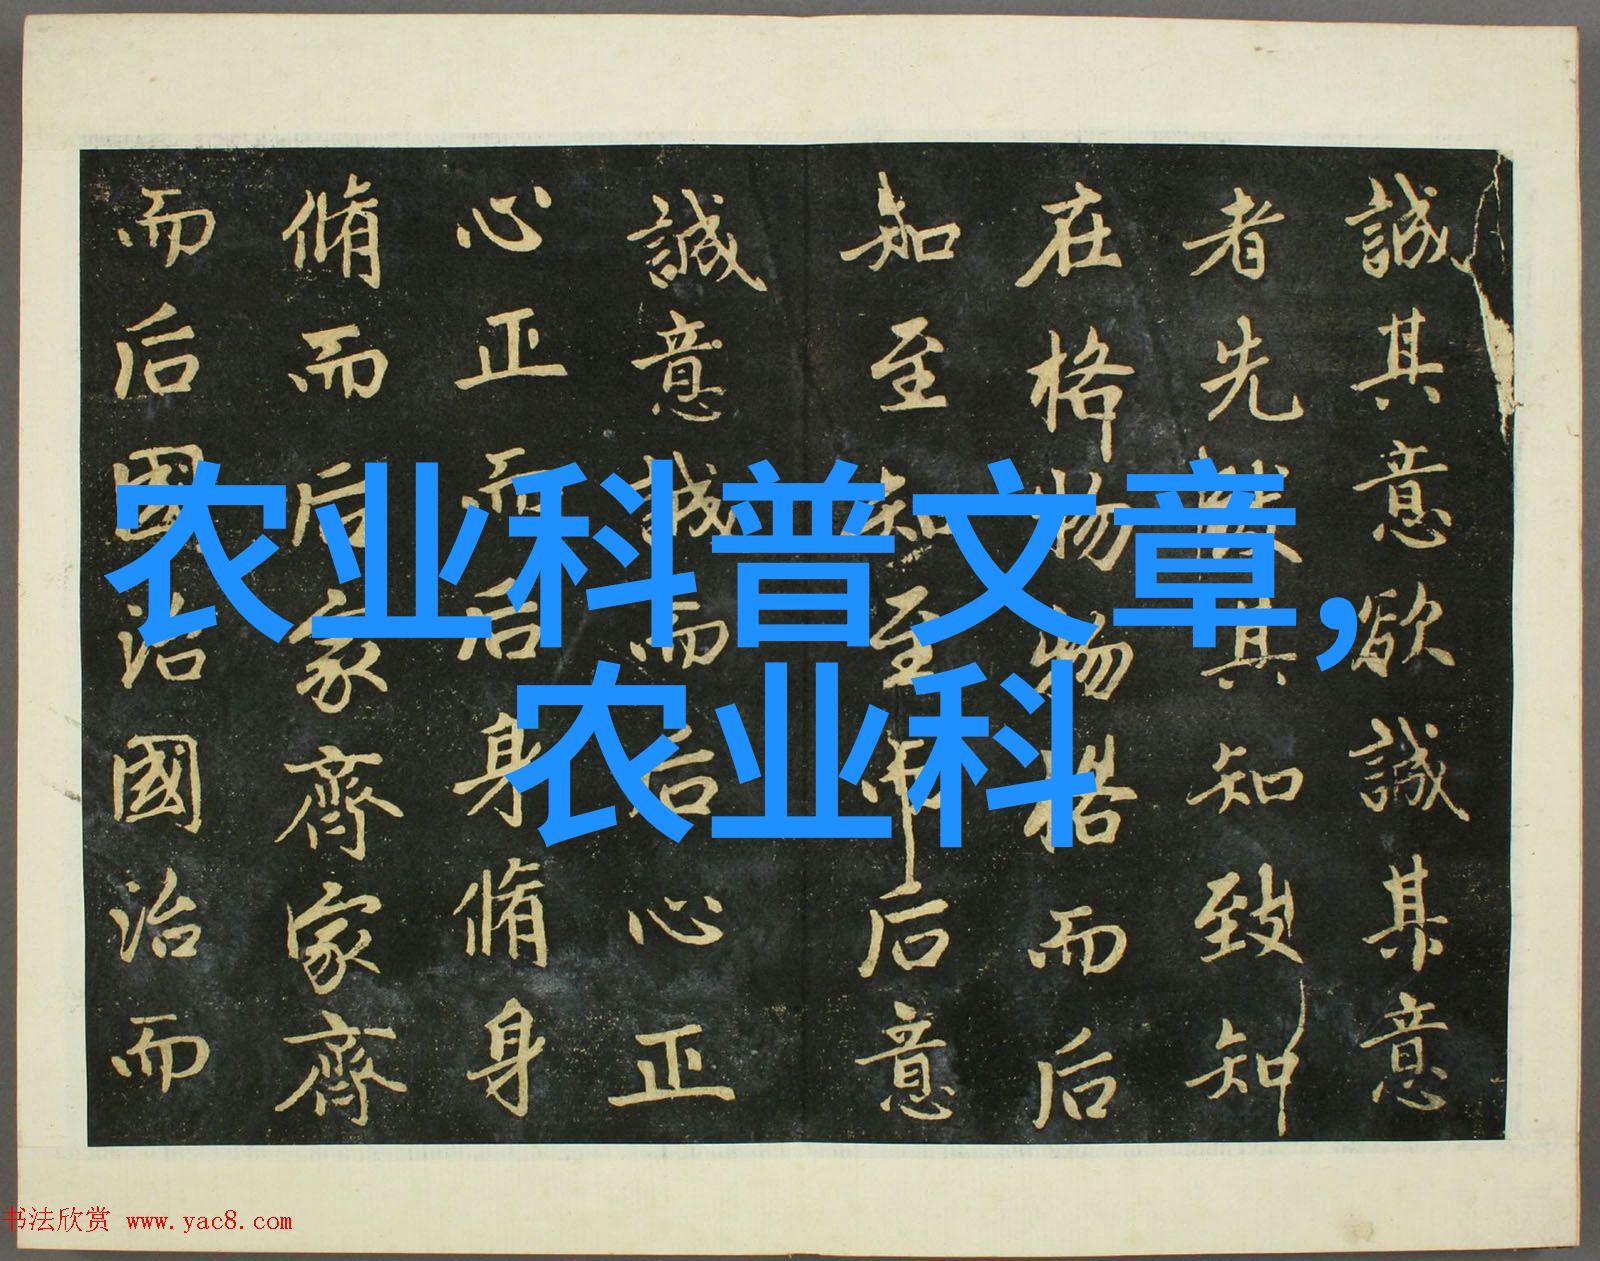 誠其意欲誠其意
者先致其知致知
在格物物格而后
知至知至而后意
誠意誠而后心正
心正而后身脩身
脩而后家齊家齊
而后國治國治而
农业科普文章,
农业科
书法欣赏 www.yac8.com